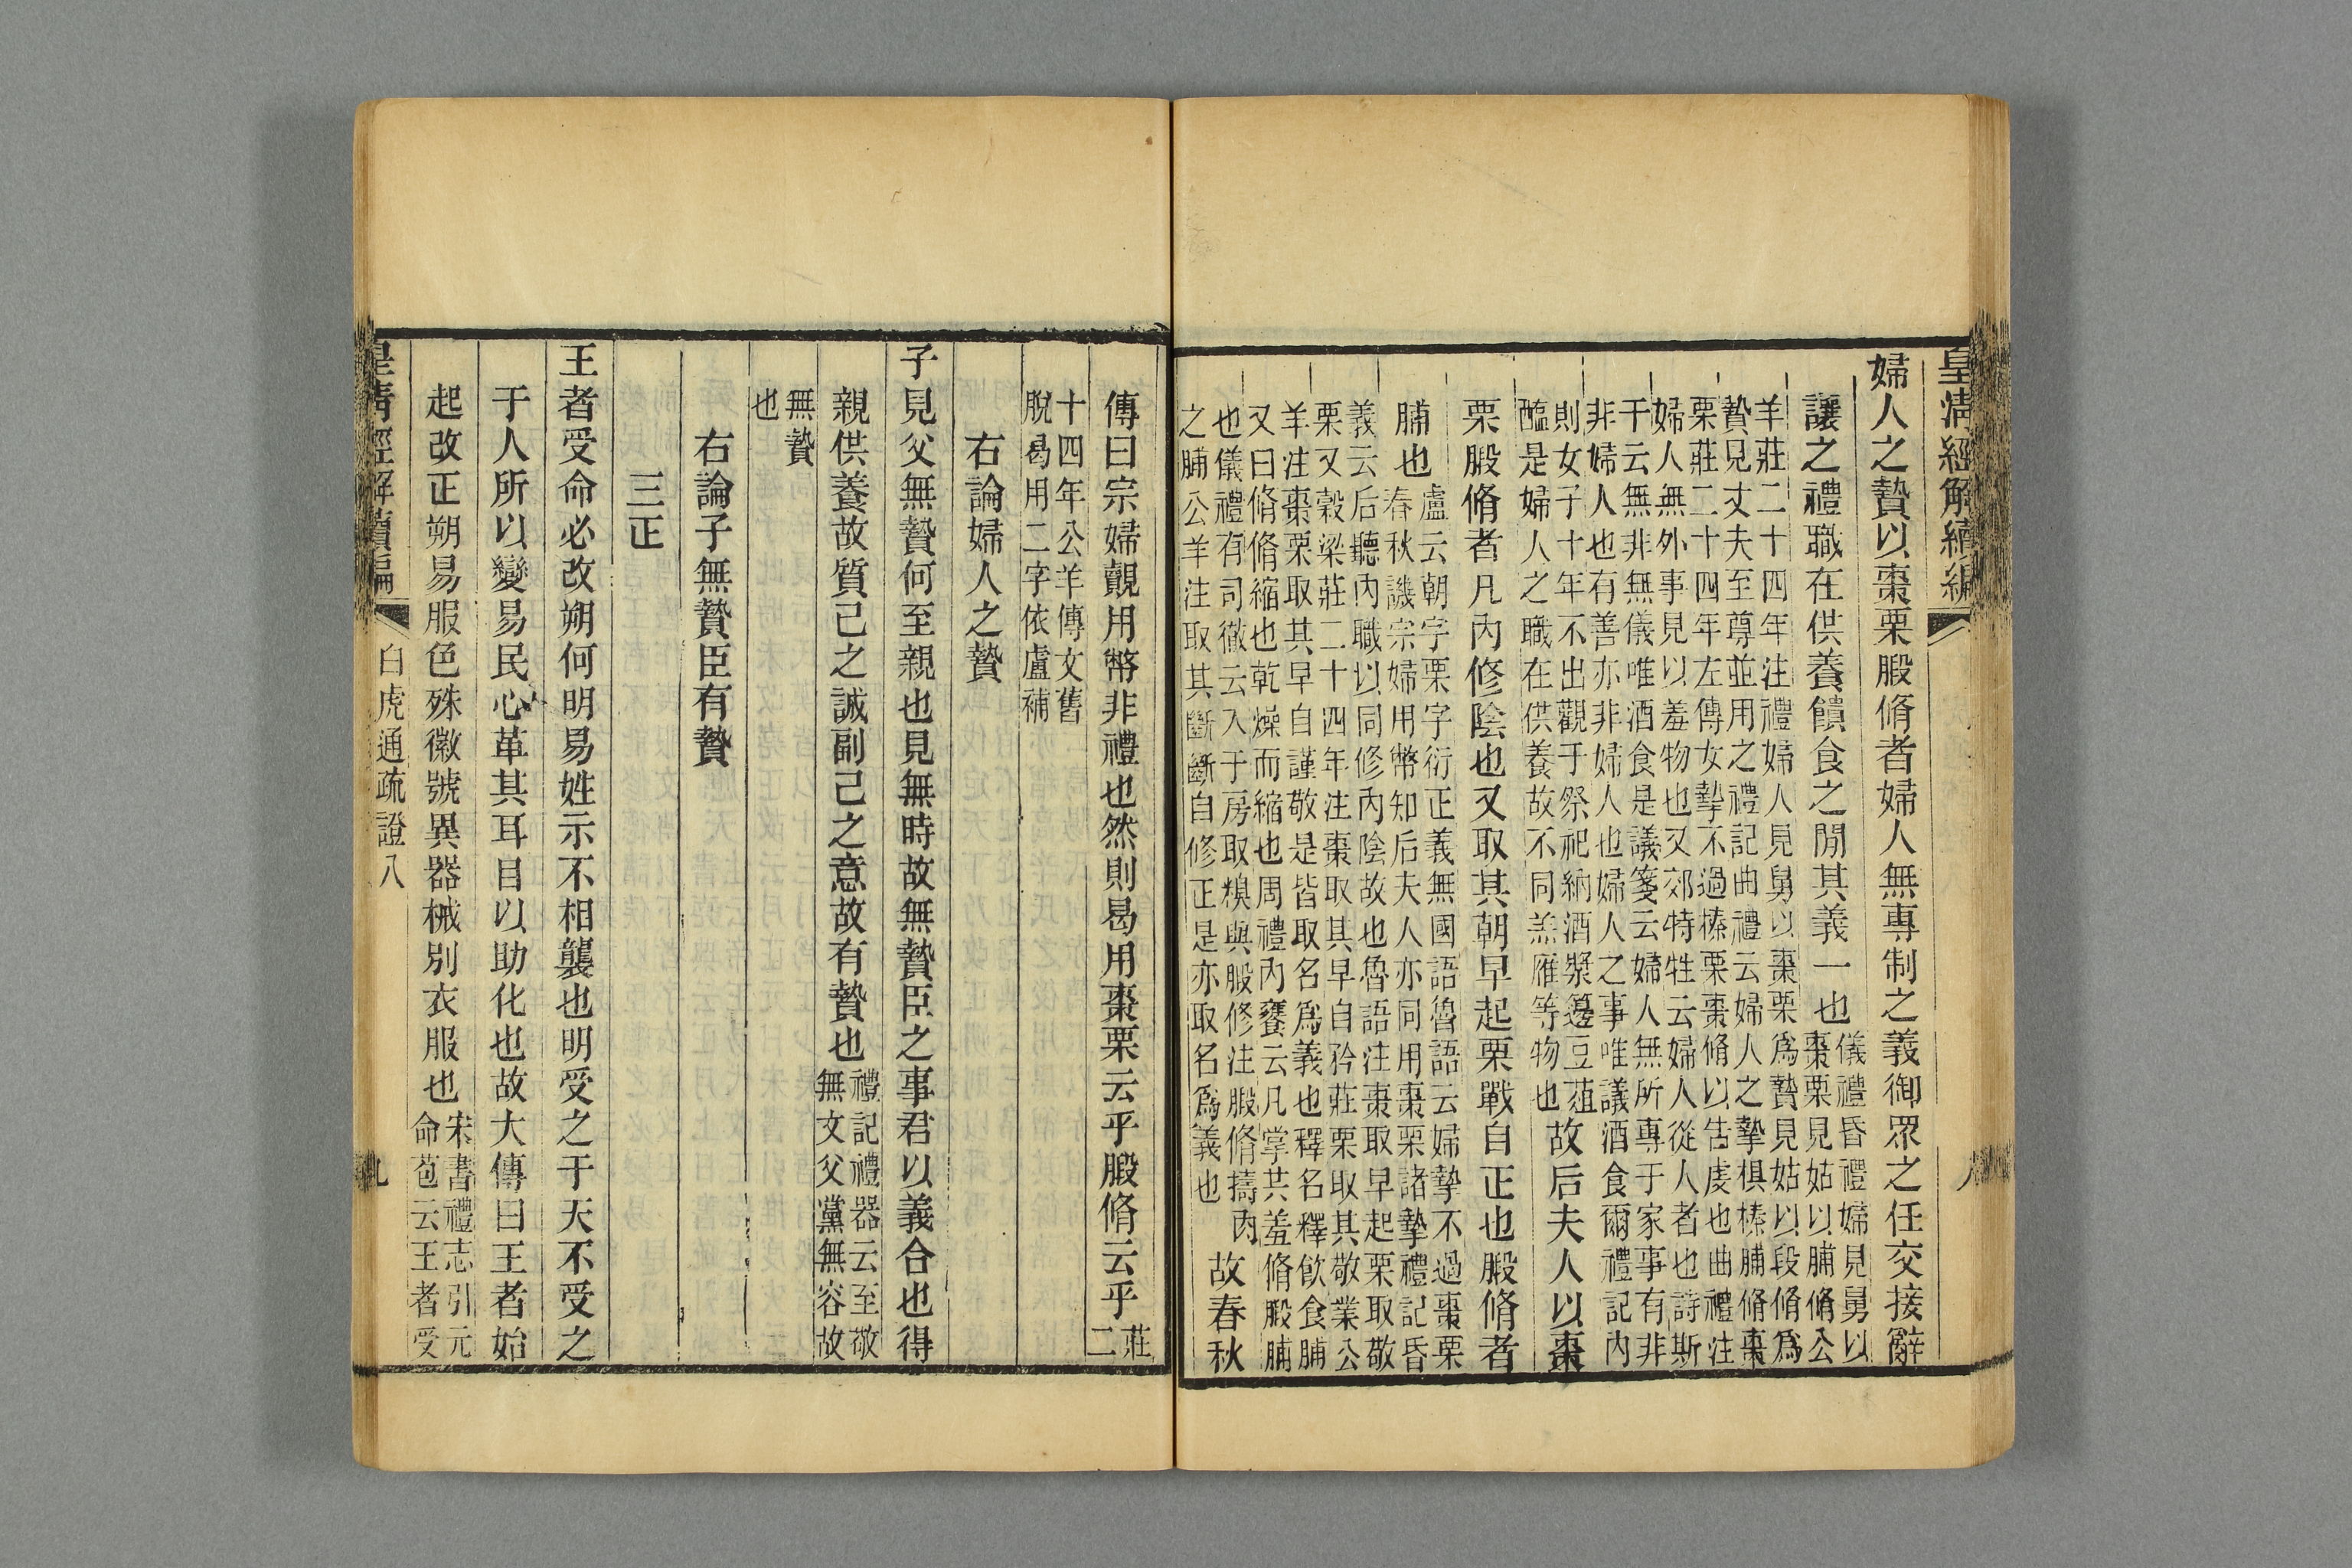 皇清經解續編
婦人之贄以棗栗腶脩者婦人無專制之義御眾之任交接辭
讓之禮職在供養饋食之閒其義一也
儀禮昏禮婦見舅以
棗栗見姑以脯脩公
羊莊二十四年注禮婦人見舅以棗栗爲贄見姑以段脩爲
贄見丈夫至尊並用之禮記曲禮云婦人之摯椇榛脯脩棗
栗莊二十四年左傳女摯不過榛栗棗脩以告虔也曲禮注
婦人無外事見以羞物也又郊特牲云婦人從人者也詩斯
干云無非無儀唯酒食是議箋云婦人無所專于家事有非
非婦人也有善亦非婦人也婦人之事唯議酒食爾禮記內
則女子十年不出觀于祭祀納酒漿籩豆菹
醢是婦人之職在供養故不同羔雁等物也
故后夫人以棗
栗腶脩者凡內修陰也又取其朝早起栗戰自正也腶脩者
脯也
盧云朝字栗字衍正義無國語魯語云婦摯不過棗栗
春秋譏宗婦用幣知后夫人亦同用棗栗諸摯禮記昏
義云后聽內職以同修內陰故也魯語注棗取早起栗取敬
栗又穀梁莊二十四年注棗取其早自矜莊栗取其敬業公
羊注棗栗取其早自謹敬是皆取名爲義也釋名釋飲食脯
又曰脩脩縮也乾燥而縮也周禮內饔云凡掌共羞脩腶脯
也儀禮有司徹云入于房取糗與腶修注腶脩擣肉
之脯公羊注取其斷斷自修正是亦取名爲義也
故春秋
傳曰宗婦覿用幣非禮也然則曷用棗栗云乎腶脩云乎
莊
二
十四年公羊傳文舊
脫曷用二字依盧補
右論婦人之贄
子見父無贄何至親也見無時故無贄臣之事君以義合也得
親供養故質己之誠副己之意故有贄也
禮記禮器云至敬
無文父黨無容故
無贄
也
右論子無贄臣有贄
三正
王者受命必改朔何明易姓示不相襲也明受之于天不受之
于人所以變易民心革其耳目以助化也故大傳曰王者始
起改正朔易服色殊徽號異器械別衣服也
宋書禮志引元
命苞云王者受
皇清經解續編
白虎通疏證八
九